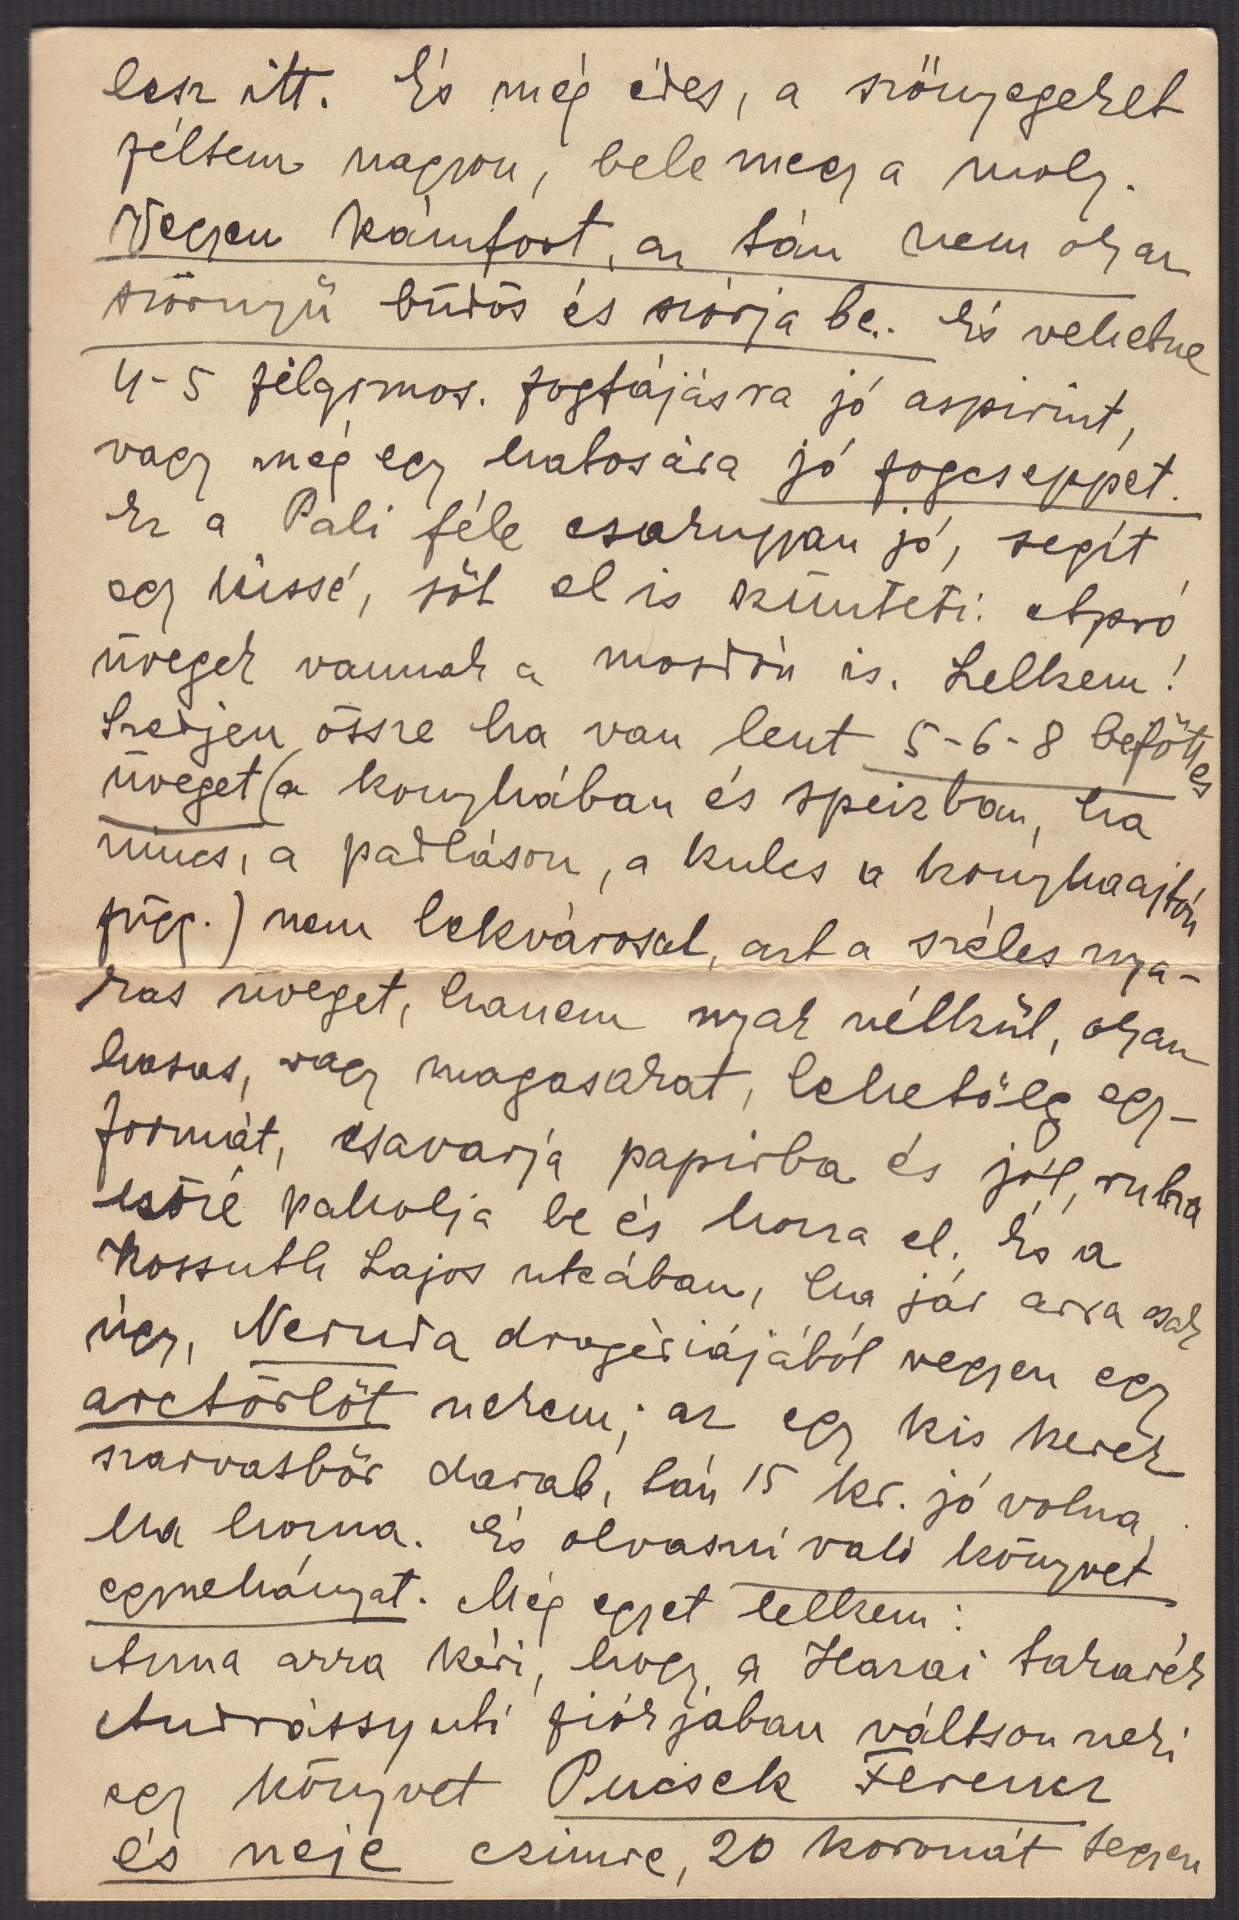 lesz itt. És még édes, a szőnyegeket
féltem nagyon, belemegy a moly.
Vegyen kámfort, az tán nem olyan
szörnyű büdös és szórja be. És vehetne
4-5 félgrmos. fogfájásra jó aspirint,
vagy még egy hatosára jó fogcseppet.
Ez a Pali féle csakugyan jó, segít
egy kissé, sőt el is szünteti. Apró
üvegek vannak a mosdón is. Lelkem!
Szedjen össze ha van lent 5-6-8 befőttes
üveget (a konyhában és speizban, ha
nincs, a padláson, a kulcs a konyhaajtón
függ.) nem lekvárosat, azt a széles nya-
kas üveget, hanem nyak nélkül, olyan
hasas, vagy magasakat, lehetőleg egy-
formát, csavarja papirba és jól, ruha
közé pakolja be és hozza el. És a
Kossuth Lajos utcában, ha jár arra csak
úgy, Neruda drogériájából vegyen egy
arctörlőt nekem; az egy kis kerek
szarvasbőr darab, tán 15 kr. jó volna,
ha hozna. És olvasni való könyvet
egynehányat. Még egyet lelkem:
Anna arra kéri, hogy a Hazai takarék
Andrássyuti fiókjában váltson neki
egy könyvet Pucsek Ferencz
és neje czimre, 20 koronát tegyen